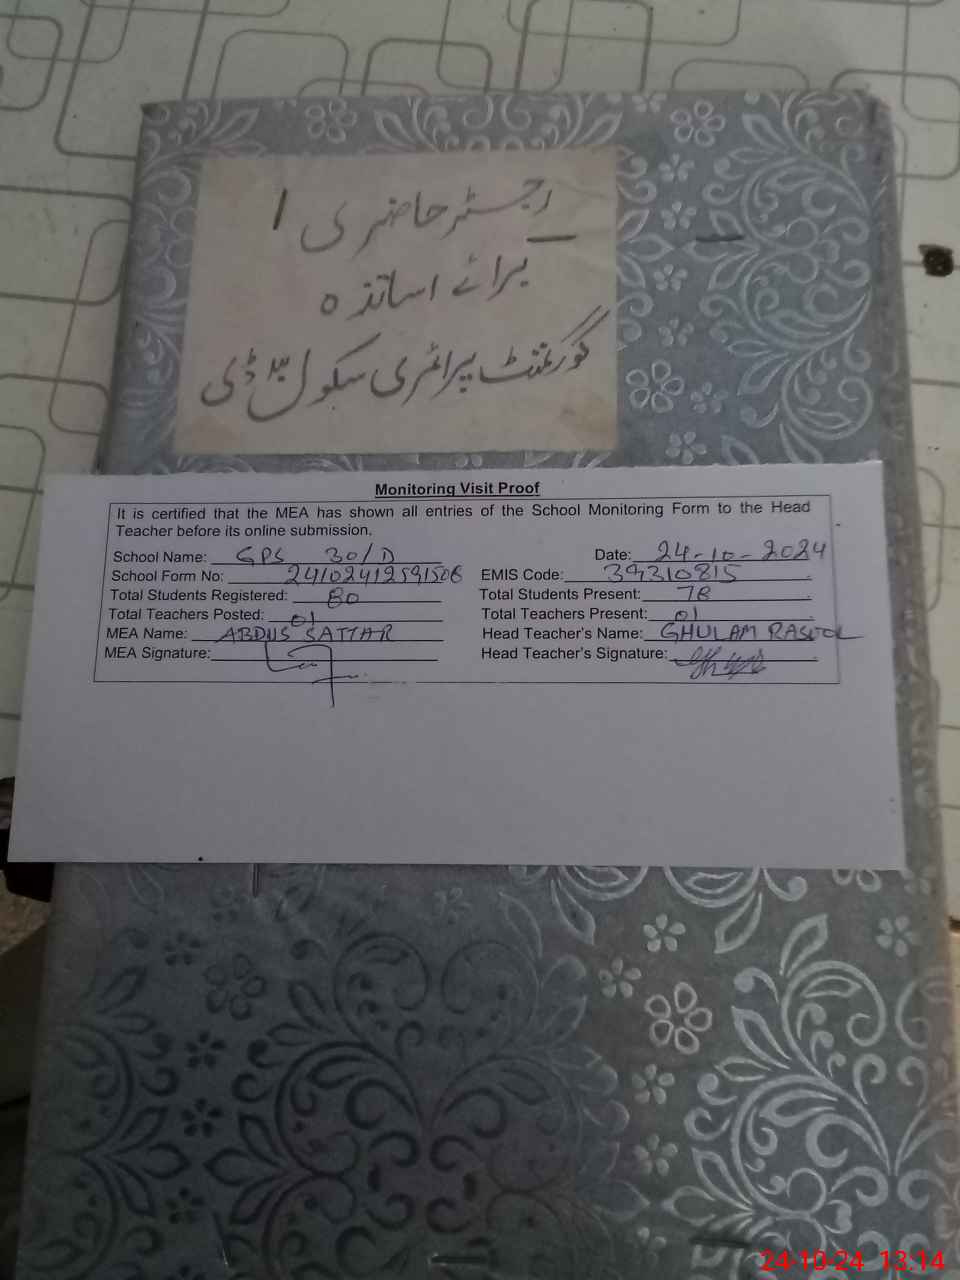 رجسٹر حاضری 1
برائے اساتذہ
گورنمنٹ پرائمری سکول ۳۰ ڈی
Monitoring Visit Proof
It is certified that the MEA has shown all entries of the School Monitoring Form to the Head
Teacher before its online submission.
School Name: GPS 30/D Date: 24-10-2024
School Form No: 24102412591506 EMIS Code: 39310815
Total Students Registered: 80 Total Students Present: 78
Total Teachers Posted: 01 Total Teachers Present: 01
MEA Name: ABDUS SATTAR Head Teacher's Name: GHULAM RASOOL
MEA Signature: Head Teacher's Signature:
24-10-24 13:14